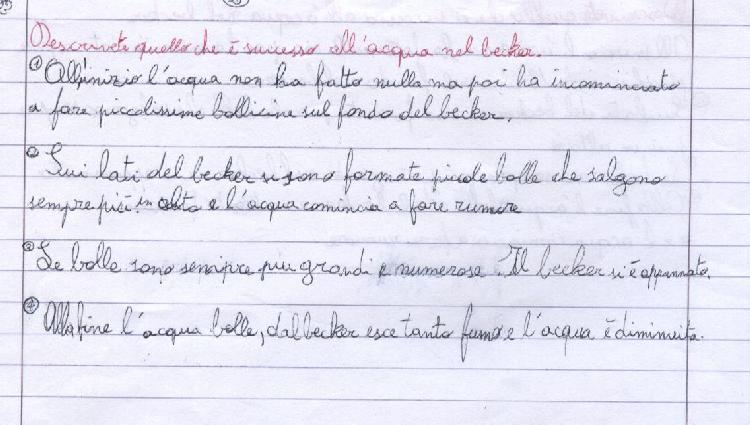 Descrivete quello che è successo all'acqua nel becker.
① All'inizio l'acqua non ha fatto nulla ma poi ha incominciato
a fare piccolissime bollicine sul fondo del becker.
② Sui lati del becker si sono formate piccole bolle che salgono
sempre più in alto e l'acqua comincia a fare rumore
③ Le bolle sono sempre più grandi e numerose. Il becker si è appannato.
④ Alla fine l'acqua bolle, dal becker esce tanto fumo e l'acqua è diminuita.